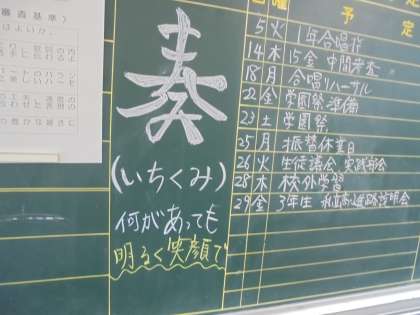 審査基準》
奏
(いちくみ)
何があっても
明るく笑顔で
曜 予定
5火 1年合唱祭
14木 15金 中間考査
18月 合唱リハーサル
22金 学園祭準備
23土 学園祭
25月 振替休業日
26火 生徒議会、実践部会
28木 校外学習
29金 3年生 説明会